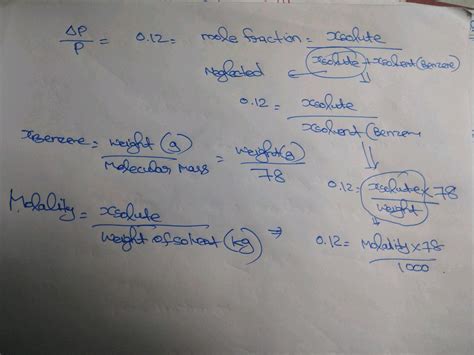 ΔP/P = 0.12 = mole fraction = xsolute / xsolute + xsolvent (Benzene)
Neglected
0.12 = xsolute / xsolvent (Benzene
xBenzene = weight (g) / Molecular Mass = weight(g) / 78
0.12 = xsolute × 78 / weight
Molality = xsolute / weight of solvent (kg) ⇒ 0.12 = Molality × 78 / 1000